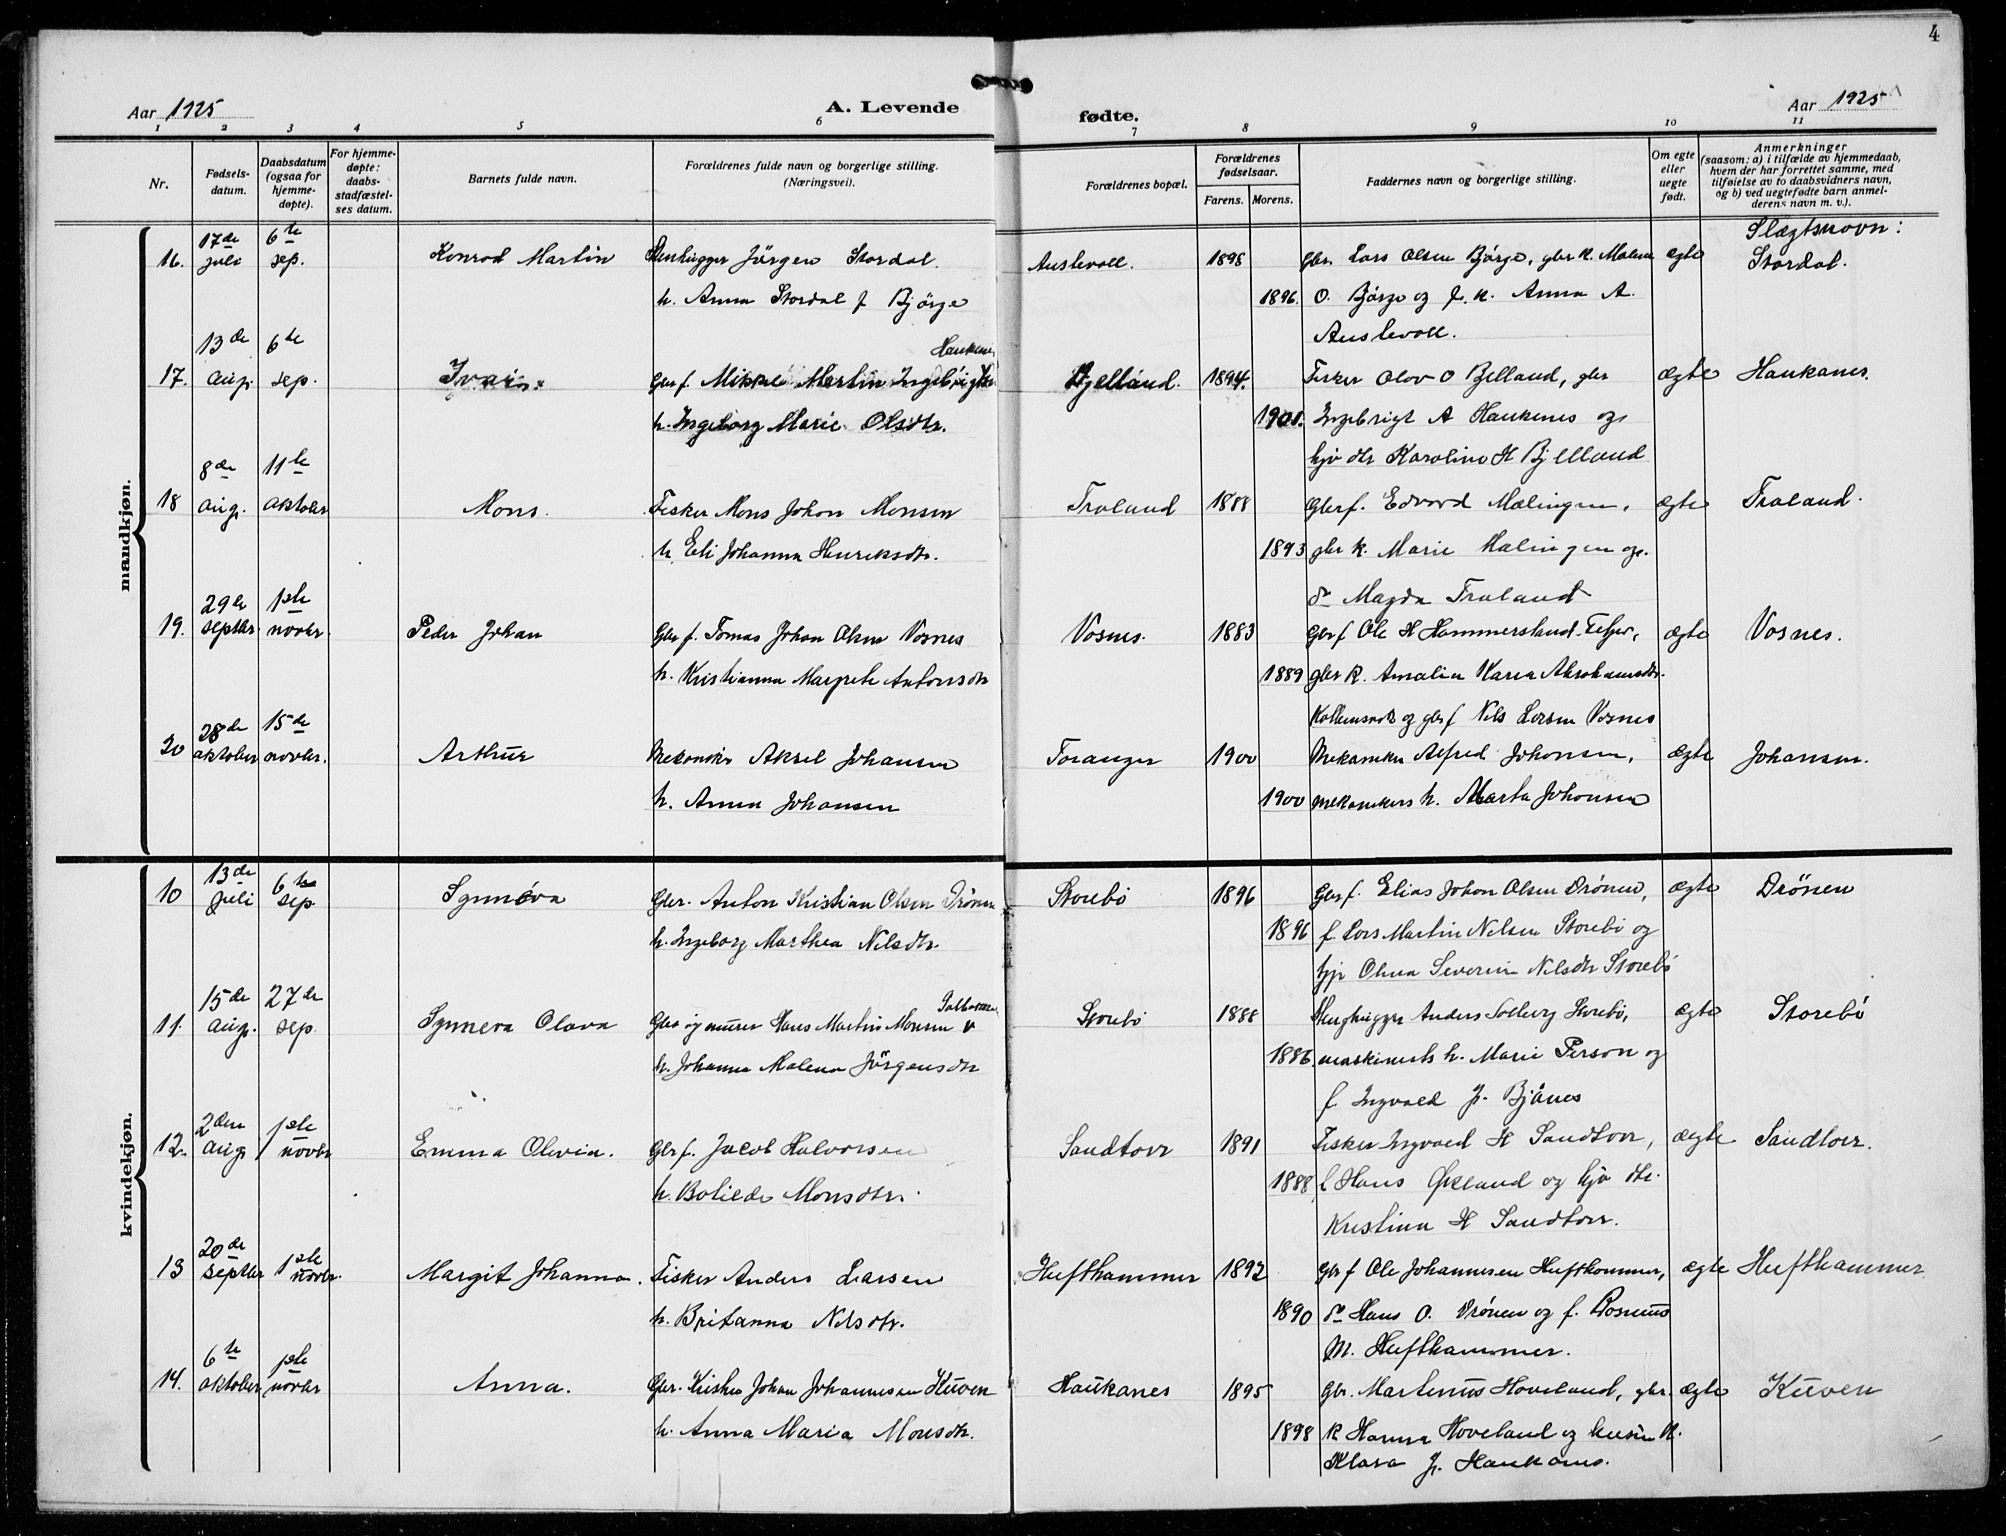 4
Aar 1925
A. Levende
fødte.
Aar 1925
1 2 3 4 5 6 7 8 9 10 11
Nr.
Fødsels-
datum.
Daabsdatum
(ogsaa for
hjemme-
døpte).
For hjemme-
døpte:
daabs-
stadfæstel-
ses datum.
Barnets fulde navn.
Forældrenes fulde navn og borgerlige stilling.
(Næringsvei).
Forældrenes bopæl.
Forældrenes
fødselsaar.
Farens. Morens.
Faddernes navn og borgerlige stilling.
Om egte
eller
uegte
født.
Anmerkninger
(saasom: a) i tilfælde av hjemmedaab,
hvem der har forrettet samme, med
tilføielse av to daabsvidners navn,
og b) ved uegtefødte barn anmel-
derens navn m. v.).
mandkjøn.
Slægtsnavn:
17de 6te
16. juli sep. Konrad Martin Stenhugger Jörgen Stordal. Auslevoll. 1898 gbr. Lars Olsen Björge, gbr k. Malene ægte Stordal.
h. Anna Stordal f Björge 1896. O. Björge og f. k. Anna A.
Auslevoll.
13de 6te Haukanes
17. aug. sep. Ivar Gbrf. Mikkel Martin Ingebrigts Bjelland. 1894. Fisker Olov O Bjelland, gbr ægte Haukanes.
h. Ingeborg Marie Olsdtr. 1901. Ingebrigt A Haukenes og
hjv dtr Karoline H Bjelland
8de 11te
18 aug. oktober Mons. Fisker Mons Johan Monsen Troland 1888 Gbrf. Edvard Mælingen, ægte Troland.
h. Eli Johanna Henriksdtr. 1893 gbr k. Marie Mælingen og
do Magda Troland
29de 1ste
19. septbr. novbr. Peder Johan Gbr f. Tomas Johan Olsen Vosnes Vosnes. 1883 Gbrf Ole H Hammersland, ægte Vosnes.
h. Kristianna Margrete Antonsdtr 1889 gbr k. Amalia Karia Abrahamsdtr.
og gbrf Nils Larsen Vosnes
28de 15de
20 oktober novbr. Arthur Mekaniker Aksel Johansen Toranger 1900 Mekaniker Alfred Johansen, ægte Johansen.
h. Anna Johansen 1900 mekanikers h. Marta Johansen
kvindekjøn.
13de 6te
10 juli sep Synnöva Gbr. Anton Kristian Olsen Drönen Storebö 1896 Gbrf. Elias Johan Olsen Drönen, ægte Drönen
h. Ingeborg Marthea Nilsdtr. 1896 f. Lars Martin Nilsen Storebö og
Olina Severine Nilsdtr Storebö
15de 27de
11. aug. sep. Synneva Olava Gbr og murer Hans Martin Monsen Storebö 1888 Anders Solberg Storebö, ægte Storebö
h. Johanna Malena Jörgensdtr 1886. maskinists h. Marie Person og
f. Ingvald J. Bjånes
2den 1ste
12. aug. novbr Emma Olivia. Gbr f. Jacob Halvorsen Sandtorv 1891 Fisker Ingvald H Sandtorv, ægte Sandtorv.
h. Bolilde Monsdtr. 1888 f Hans Økland og hjv dtr.
Kristina H Sandtorv.
20de 1ste
13 septbr novbr. Margit Johanna. Fisker Anders Larsen Hufthammer 1892 Gbr f Ole Johannesen Hufthammer, ægte Hufthammer
h. Britanna Nilsdtr. 1890 do Hans O. Drönen og f. Rasmus
M. Hufthammer.
6te 1ste
14. oktober novbr Anna. Gbr. Johan Johannesen Kuven Haukanes 1895 Gbr. Martinus Hoveland, gbr. ægte Kuven
h. Anna Maria Monsdtr. 1898 k Hanna Hoveland og
Klara J. Haukanes.